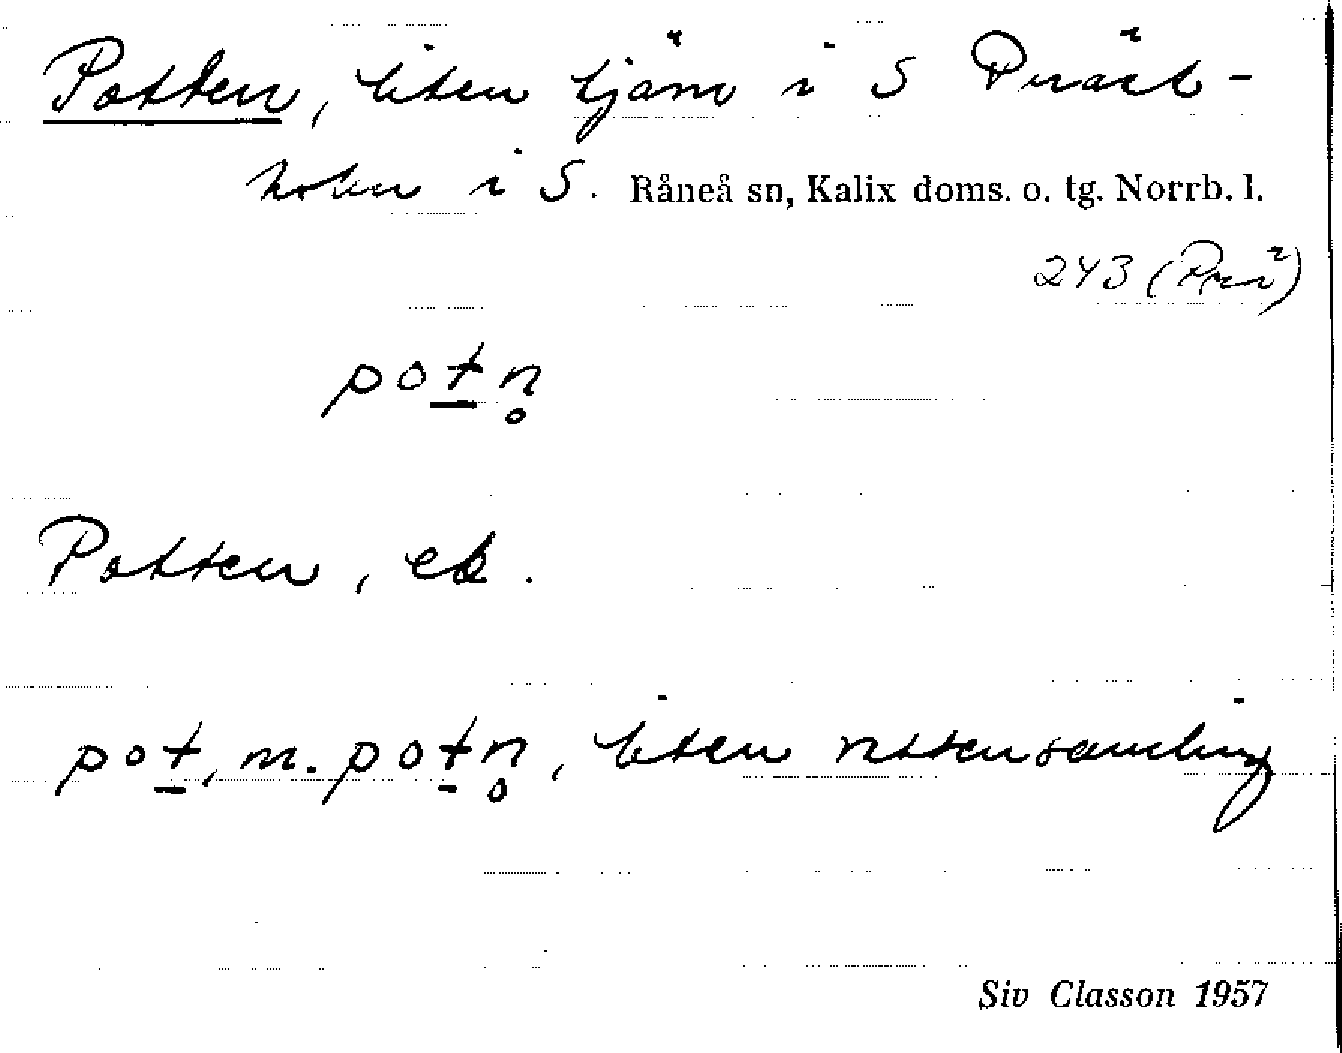 Potten, liten tjärn i S Präst-
holm i S. Råneå sn, Kalix doms. o. tg. Norrb. l.
243 (Prä)
pot̲n̥
Potten, ek.
pot̲, m. pot̲n̥, liten vattensamling
Siv Classon 1957